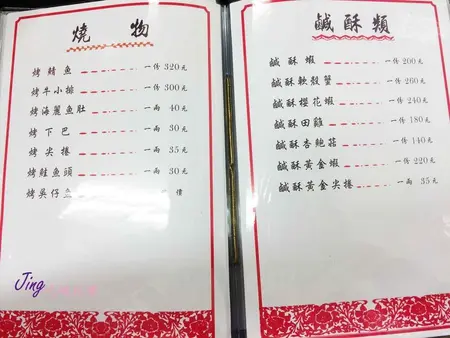 燒物
烤鯖魚 一條 320元
烤牛小排 一份 300元
烤海麗魚肚 一兩 40元
烤下巴 一兩 30元
烤尖捲 一兩 35元
烤鮭魚頭 一兩 30元
烤吳仔魚 價
Jing
鹹酥類
鹹酥蝦 一份 200元
鹹酥軟殼蟹 一份 260元
鹹酥櫻花蝦 一份 240元
鹹酥田雞 一份 180元
鹹酥杏鮑菇 一份 140元
鹹酥黃金蝦 一份 220元
鹹酥黃金尖捲 一兩 35元